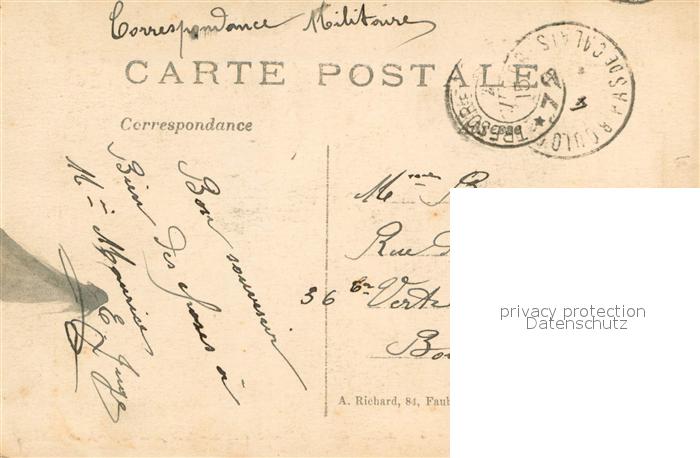 Correspondance Militaire
CARTE POSTALE
Correspondance
Bon souvenir
Bien des choses à
Mr Maurice
E. Juge
Mme
Rue
36 Verte
Bo
A. Richard, 84, Faub
TRÉSOR ET
15
* 7 *
PAS DE CALAIS
privacy protection
Datenschutz